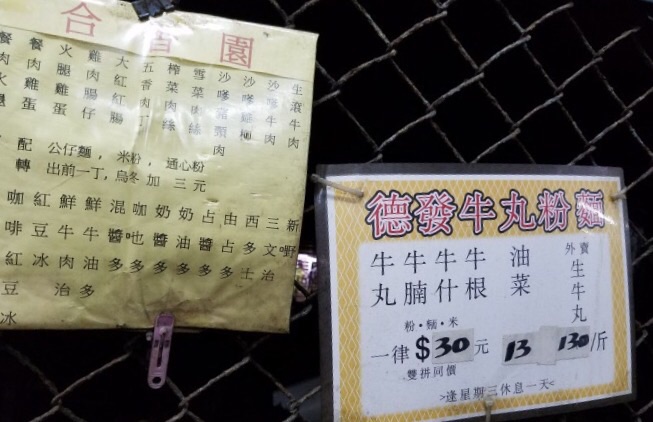 合 園
生滾牛肉
沙嗲牛肉
沙嗲雞
沙嗲豬頸肉
雪菜肉絲
榨菜肉絲
五香肉丁
大紅紅腸
雞肉腸仔
火腿雞蛋
餐肉雞蛋
餐肉火腿
配 公仔麵，米粉，通心粉
轉 出前一丁，烏冬加三元
新野
三文治
西多士
由占多
占醬多
奶油多
奶醬多
咖也多
混醬多
鮮牛油多
鮮牛肉治
紅豆冰
咖啡紅豆冰
德發牛丸粉麵
牛丸
牛腩
牛什
牛根
油菜
外賣生牛丸
粉·麵·米
一律$30元 13 130/斤
雙拼同價
>逢星期三休息一天<